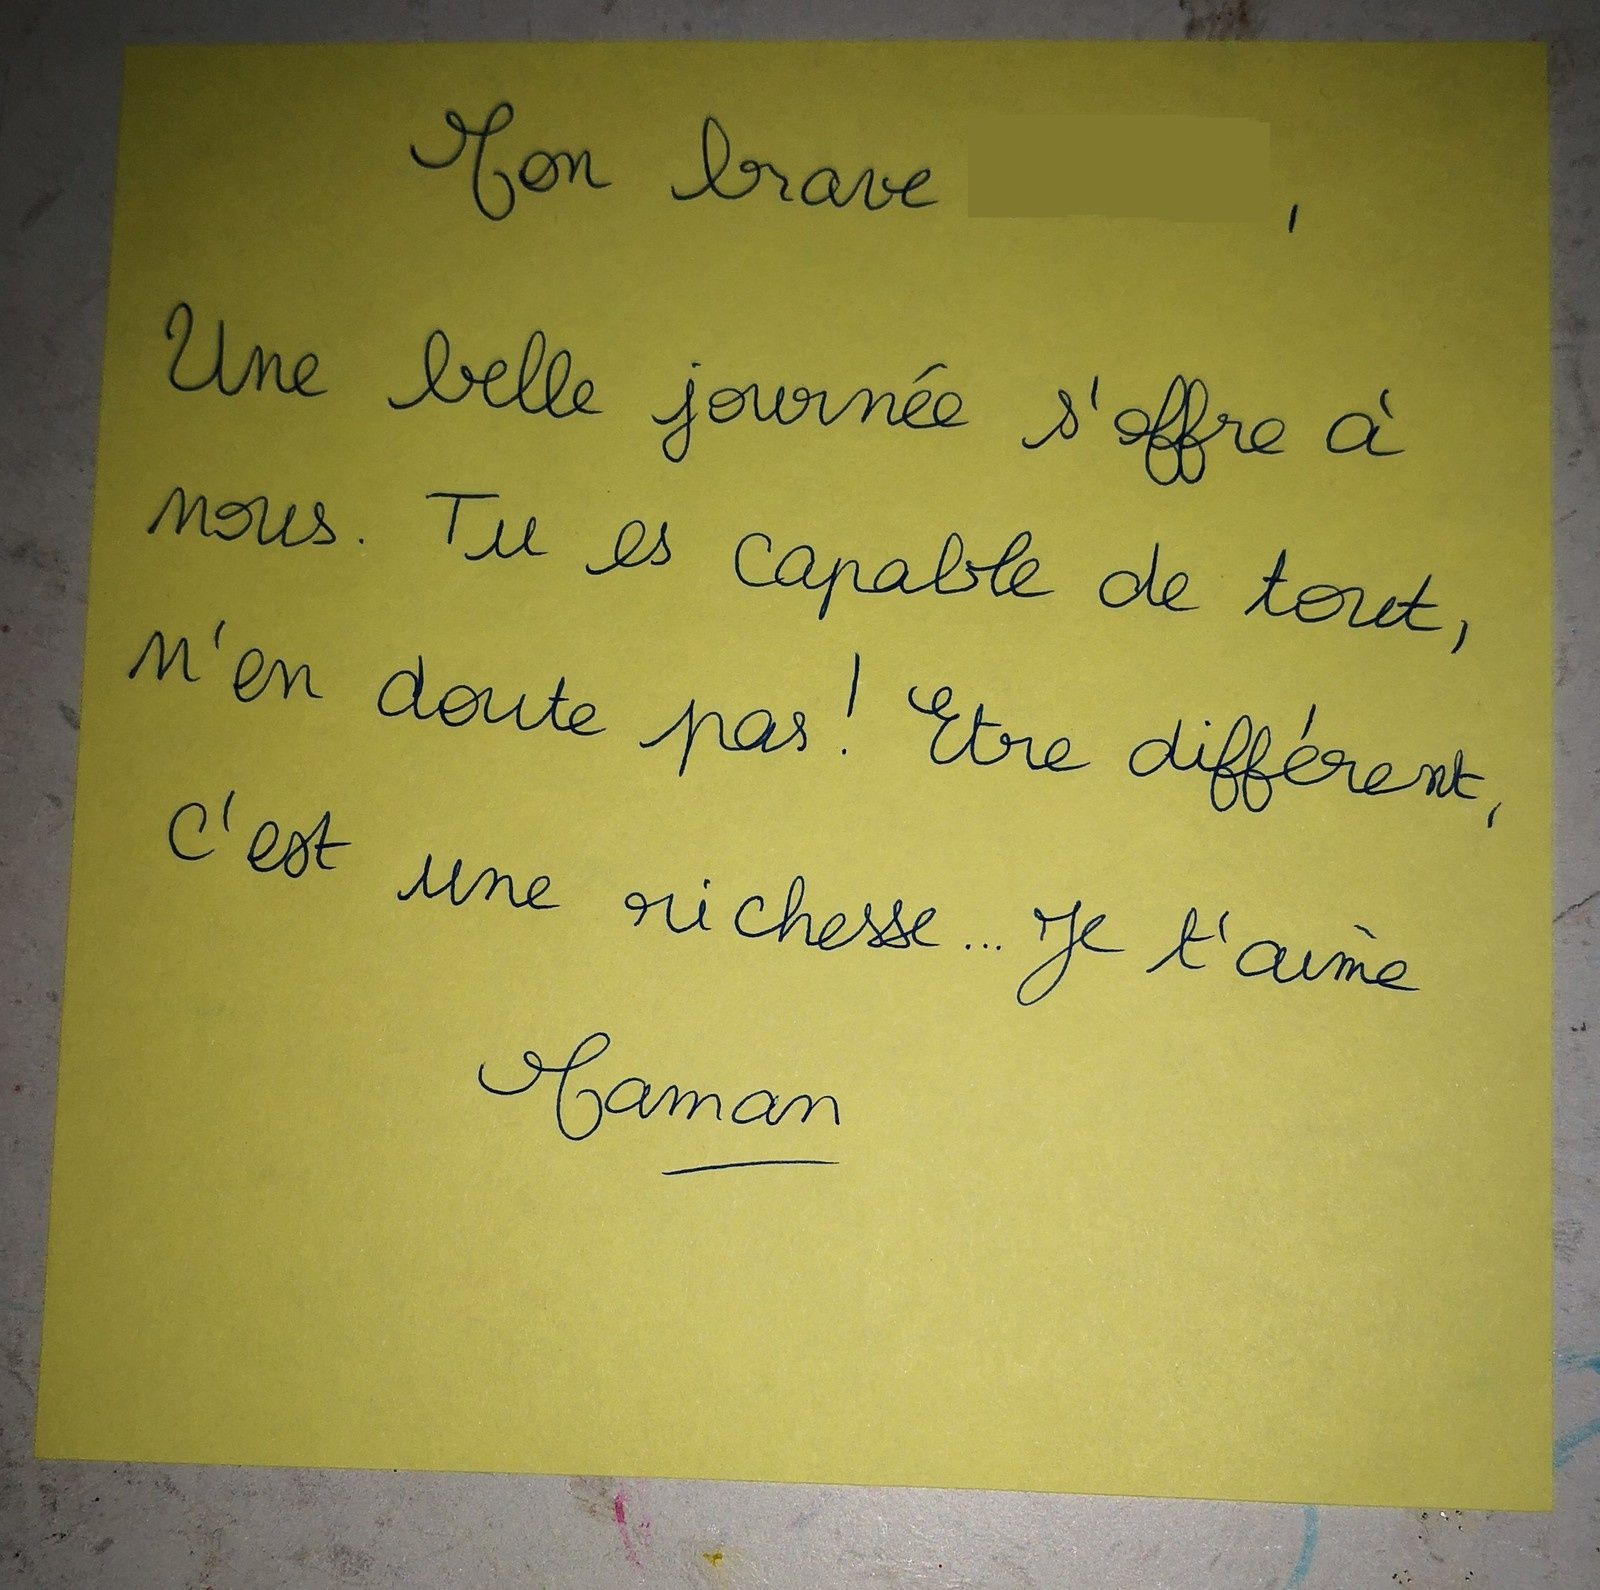 Mon brave ,
Une belle journée s'offre à
nous. Tu es capable de tout,
n'en doute pas! Etre différent,
c'est une richesse... Je t'aime
Maman